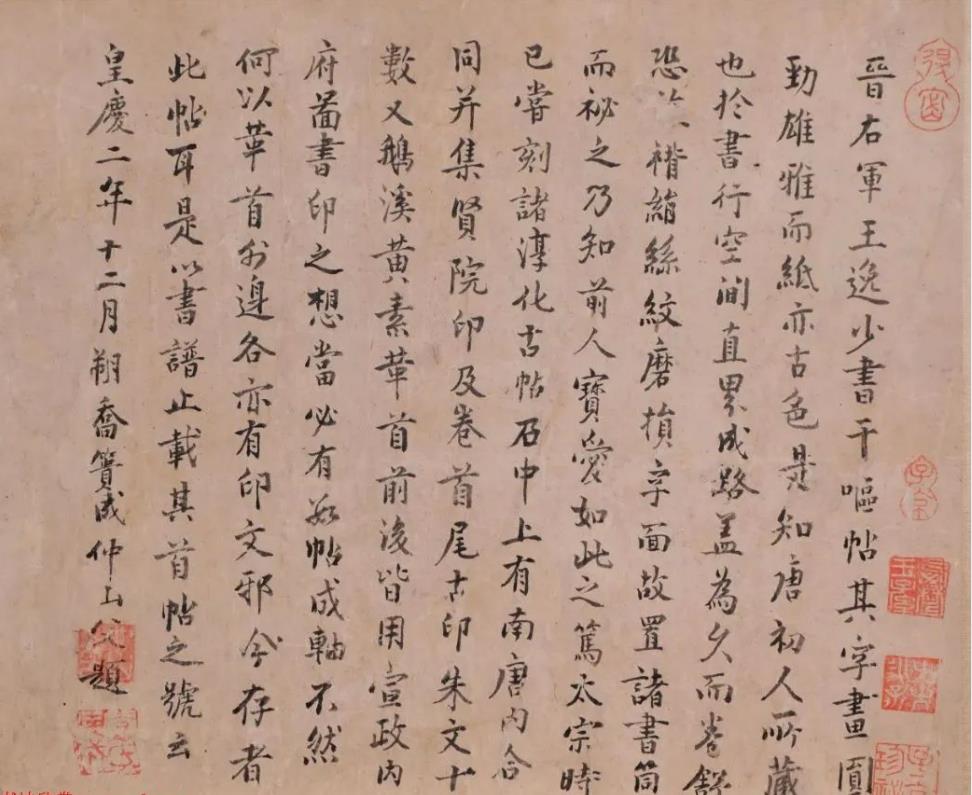 晉右軍王逸少書干嘔帖其字畫圓
勁雄雅而紙亦古色是知唐初人所藏
也於書行空間直界成路蓋為久而卷舒
恐冷褙綃絲紋磨損字面故置諸書筒
而祕之乃知前人寶愛如此之篤太宗時
已嘗刻諸淳化古帖石中上有南唐內合
同并集賢院印及卷首尾古印朱文十
數又鵝溪黃素華首前後皆用宣政內
府圖書印之想當必有數帖成軸不然
何以華首外邊各亦有印文邪今存者
此帖耳是以書譜止載其首帖之號云
皇慶二年十二月朔喬簣成仲山父題